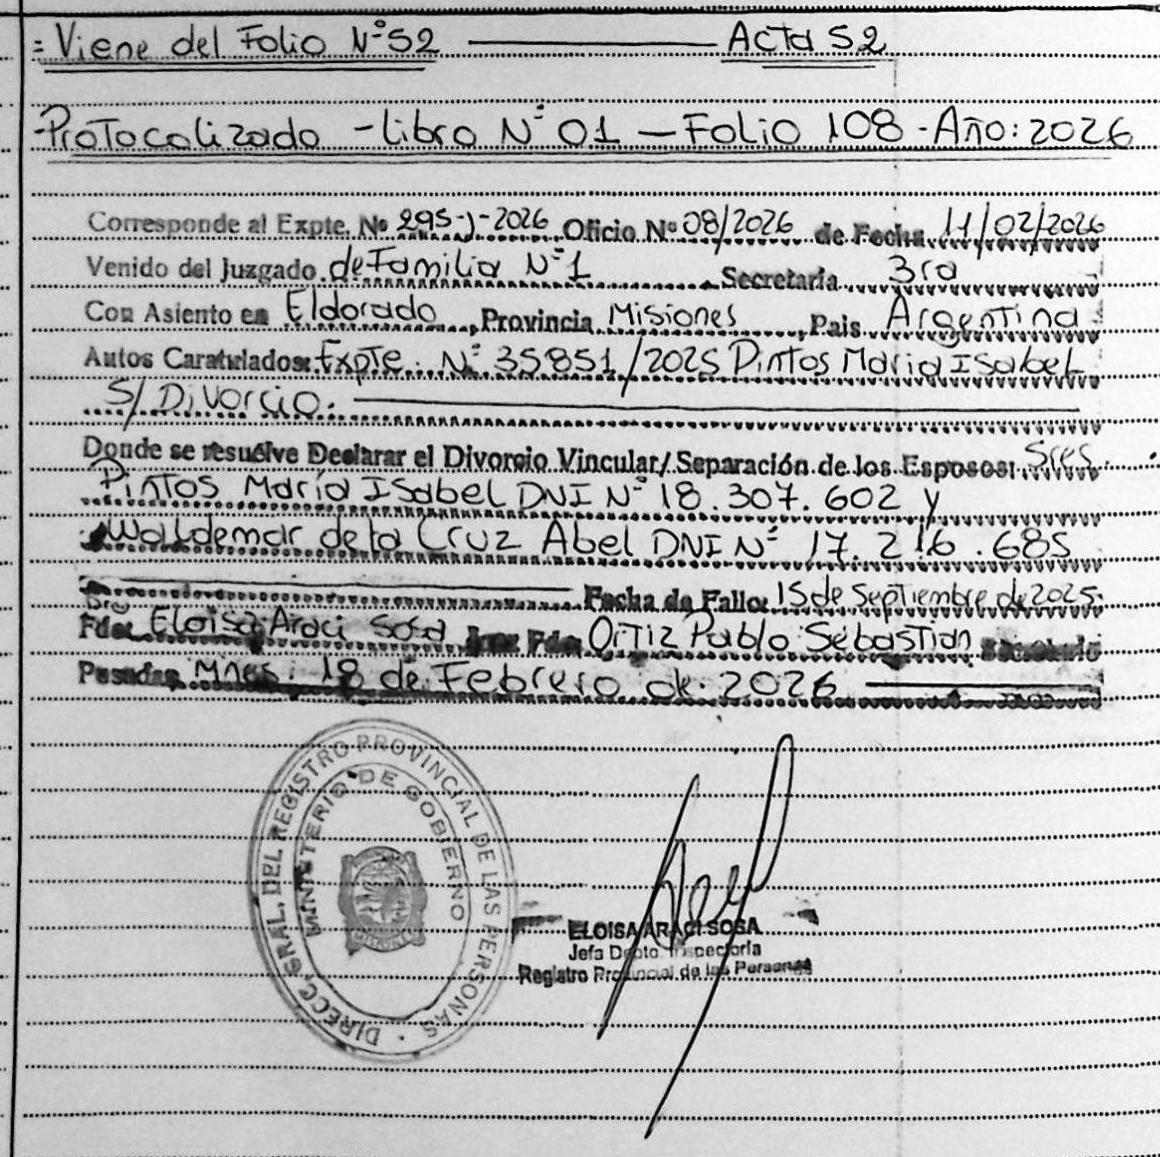 = Viene del Folio N° 52 ——— Acta 52
- Protocolizado - Libro N° 01 — Folio 108 - Año: 2026
Corresponde al Expte. Nº 295-J-2026 Oficio Nº 08/2026 de Fecha 11/02/2026
Venido del Juzgado de Familia N°1 Secretaria 3ra
Con Asiento en Eldorado, Provincia Misiones, Pais Argentina
Autos Caratulados: Expte. N° 35851/2025 Pintos Maria Isabel
S/ Divorcio.
Donde se resuelve Declarar el Divorcio Vincular/ Separación de los Esposos: Sres.
Pintos María Isabel DNI N° 18.307.602 y
Waldemar de la Cruz Abel DNI N° 17.216.685
Fecha de Fallo: 15 de Septiembre de 2025.
Fdo: Dra Eloisa Araci Sosa Juez Fdo: Ortiz Pablo Sebastian
Posadas, Mnes. 18 de Febrero de 2026
DIRECC. GRAL. DEL REGISTRO PROVINCIAL DE LAS PERSONAS
MINISTERIO DE GOBIERNO
MISIONES
ELOISA ARACI SOSA
Jefa Dpto. Inspectoria
Registro Provincial de las Personas